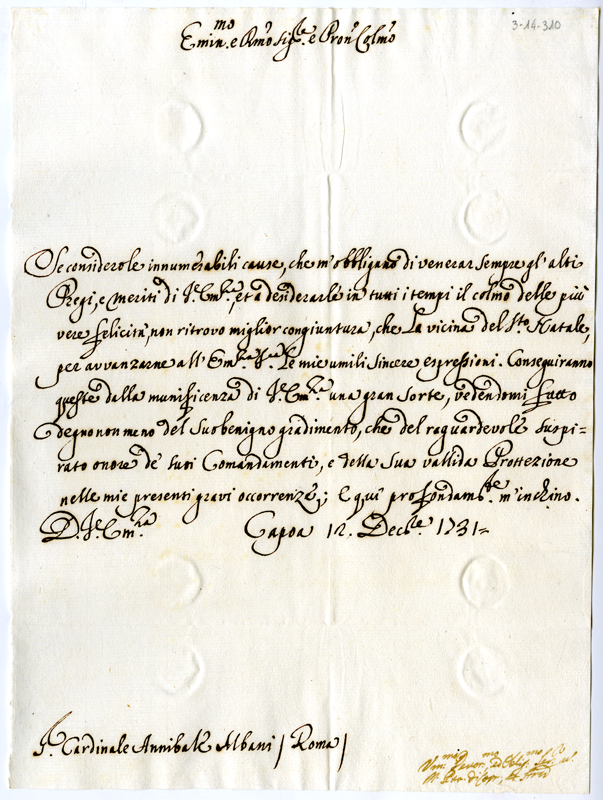 3-14-310
Emin.mo e Rmo Sig.re e Pron Colmo
Se considero le innumerabili cause, che m'obbligano di venerar sempre gl'alti
Pregi, e meriti di V.Em.za, et a desiderarle in tutti i tempi il colmo delle più
vere felicità, non ritrovo miglior congiuntura, che La vicina del S.to Natale,
per avvanzarne all'Em.za V.ra Le mie umili sincere espressioni. Conseguiranno
queste dalla munificenza di V.Em.za una gran sorte, vedendomi fatto
degno non meno del Suo benigno gradimento, che del raguardevole suspi=
rato onore de' suoi Comandamenti, e della Sua vallida Prottezione
nelle mie presenti gravi occorrenze; E quì profondam.te m'inchino.
D.V.Em.za Capoa 12. Decb.re 1731=
S.r Cardinale Annibale Albani / Roma /